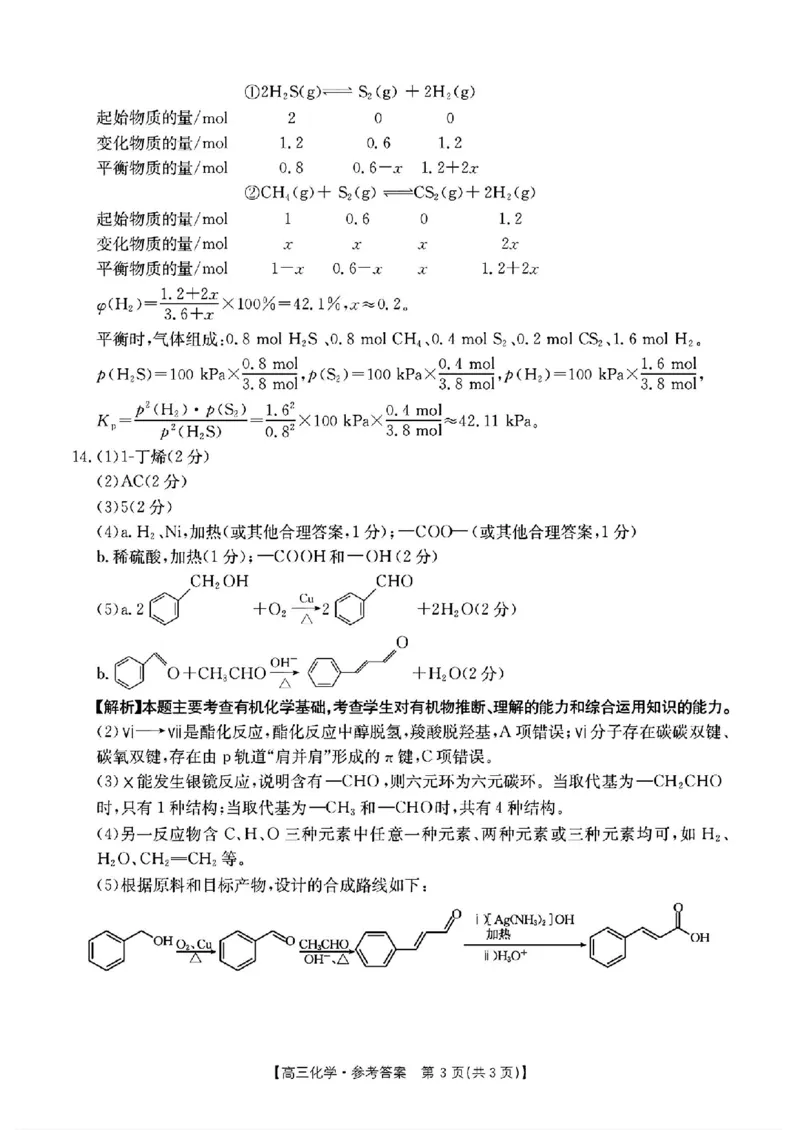 ①2H₂S(g)⇌ S₂(g) + 2H₂(g)
起始物质的量/mol 2 0 0
变化物质的量/mol 1.2 0.6 1.2
平衡物质的量/mol 0.8 0.6−x 1.2+2x
②CH₄(g)+ S₂(g) ⇌CS₂(g)+2H₂(g)
起始物质的量/mol 1 0.6 0 1.2
变化物质的量/mol x x x 2x
平衡物质的量/mol 1−x 0.6−x x 1.2+2x
φ(H₂)=(1.2+2x)/(3.6+x)×100%=42.1%,x≈0.2。
平衡时,气体组成:0.8 mol H₂S、0.8 mol CH₄、0.4 mol S₂、0.2 mol CS₂、1.6 mol H₂。
p(H₂S)=100 kPa×0.8 mol/3.8 mol,p(S₂)=100 kPa×0.4 mol/3.8 mol,p(H₂)=100 kPa×1.6 mol/3.8 mol,
Kp=p²(H₂)·p(S₂)/p²(H₂S)=1.6²/0.8²×100 kPa×0.4 mol/3.8 mol≈42.11 kPa。
14.(1)1-丁烯(2分)
(2)AC(2分)
(3)5(2分)
(4)a. H₂、Ni,加热(或其他合理答案,1分);—COO—(或其他合理答案,1分)
b.稀硫酸,加热(1分);—COOH和—OH(2分)
CH₂OH CHO
(5)a. 2 +O₂ Cu △ 2 +2H₂O(2分)
b. O+CH₃CHO OH⁻ △ O +H₂O(2分)
【解析】本题主要考查有机化学基础,考查学生对有机物推断、理解的能力和综合运用知识的能力。
(2)ⅵ→ⅶ是酯化反应,酯化反应中醇脱氢,羧酸脱羟基,A项错误;ⅵ分子存在碳碳双键、
碳氧双键,存在由p轨道“肩并肩”形成的π键,C项错误。
(3)X能发生银镜反应,说明含有—CHO,则六元环为六元碳环。当取代基为—CH₂CHO
时,只有1种结构;当取代基为—CH₃和—CHO时,共有4种结构。
(4)另一反应物含C、H、O三种元素中任意一种元素、两种元素或三种元素均可,如H₂、
H₂O、CH₂=CH₂等。
(5)根据原料和目标产物,设计的合成路线如下:
OH O₂、Cu △ O CH₃CHO OH⁻、△ O ⅰ)[Ag(NH₃)₂]OH 加热 ⅱ)H₃O⁺ O OH
【高三化学·参考答案 第3页(共3页)】